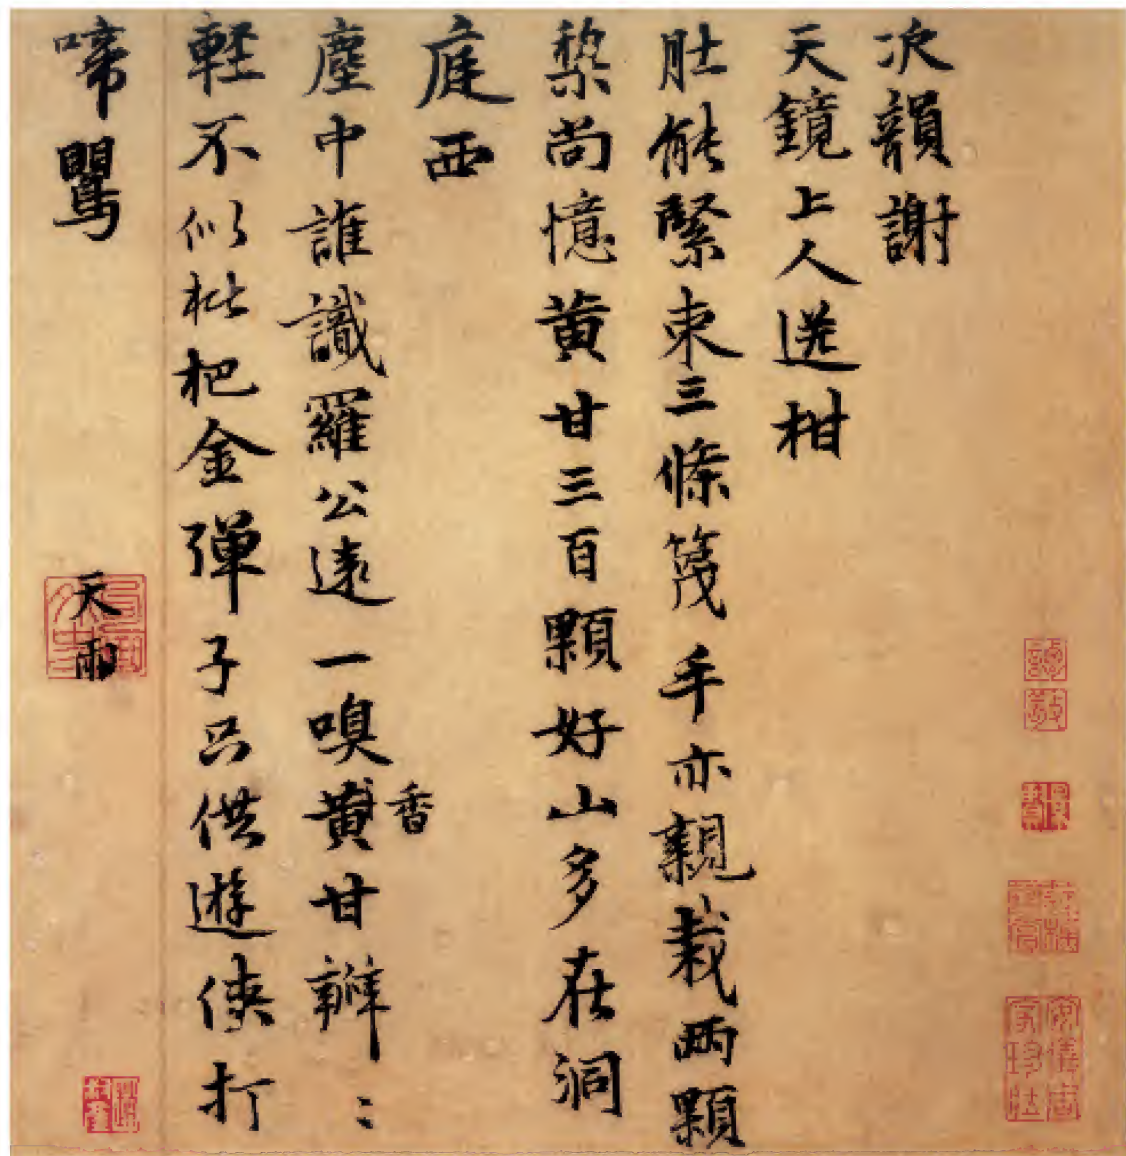 次韻謝
天鏡上人送柑
肚能緊束三條篾手亦親栽兩顆
棃尚憶黃甘三百顆好山多在洞
庭西
塵中誰識羅公遠一嗅黃甘瓣〻
香
軽不似枇杷金彈子只供遊俠打
啼鸎
天雨
安儀周家珍藏